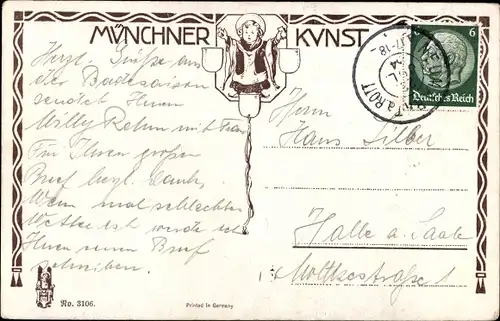 MÜNCHNER KVNST
Herzl. Grüße aus
der Badesaison
sendet Ihnen
Willy Rehm mit Frau
Für Ihren großen
Brief herzl. Dank.
Wenn mal schlechtes
Wetter ist werde ich
Ihnen einen Brief
schreiben.
Herrn
Hans Silber
Halle a. Saale
Moltkestraße 1
6
Deutsches Reich
a. ROTT
No. 3106.
Printed in Germany